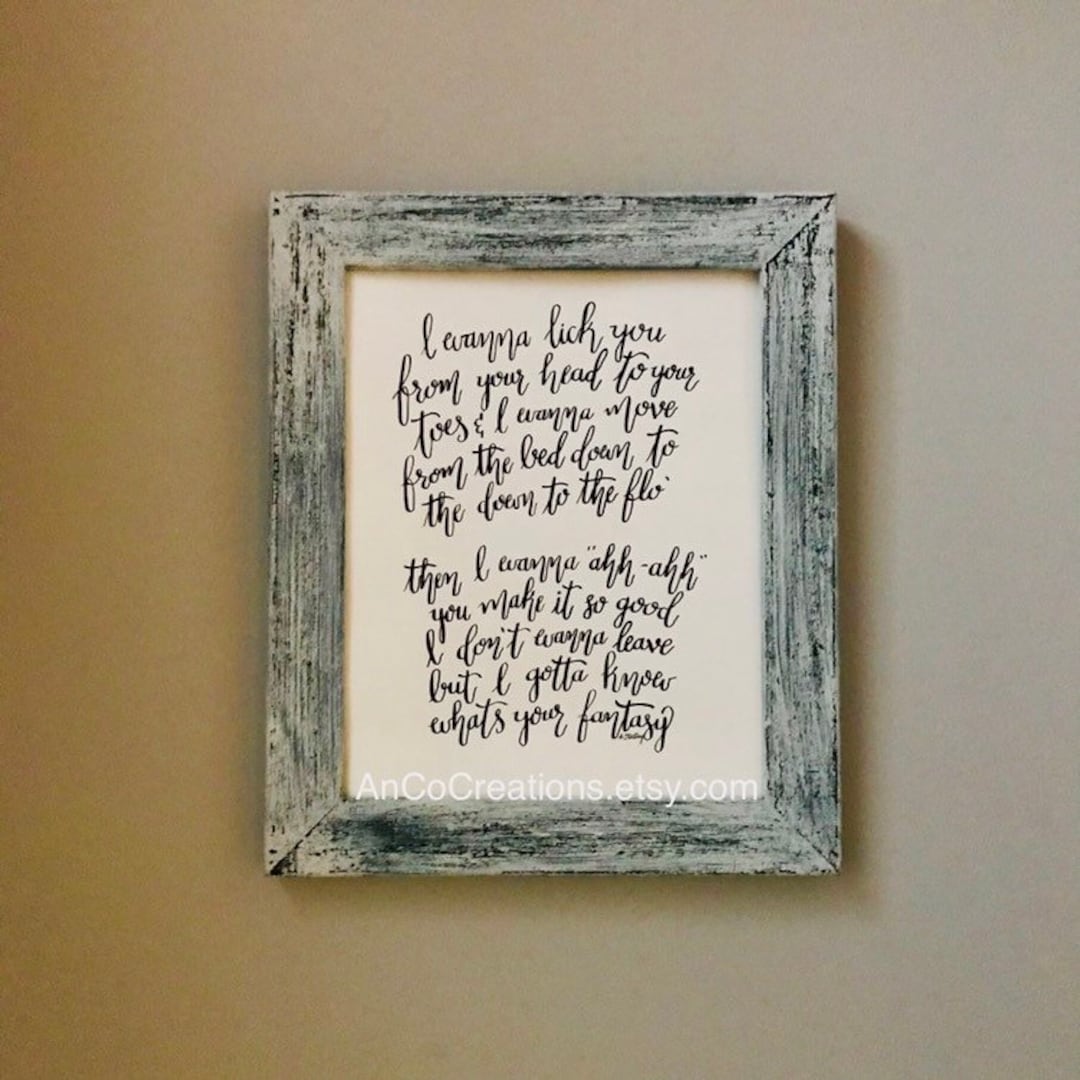 I wanna lick you
from your head to your
toes & I wanna move
from the bed down to
the down to the flo'
then I wanna "ahh-ahh"
you make it so good
I don't wanna leave
but I gotta know
whats your fantasy
AnCoCreations.etsy.com